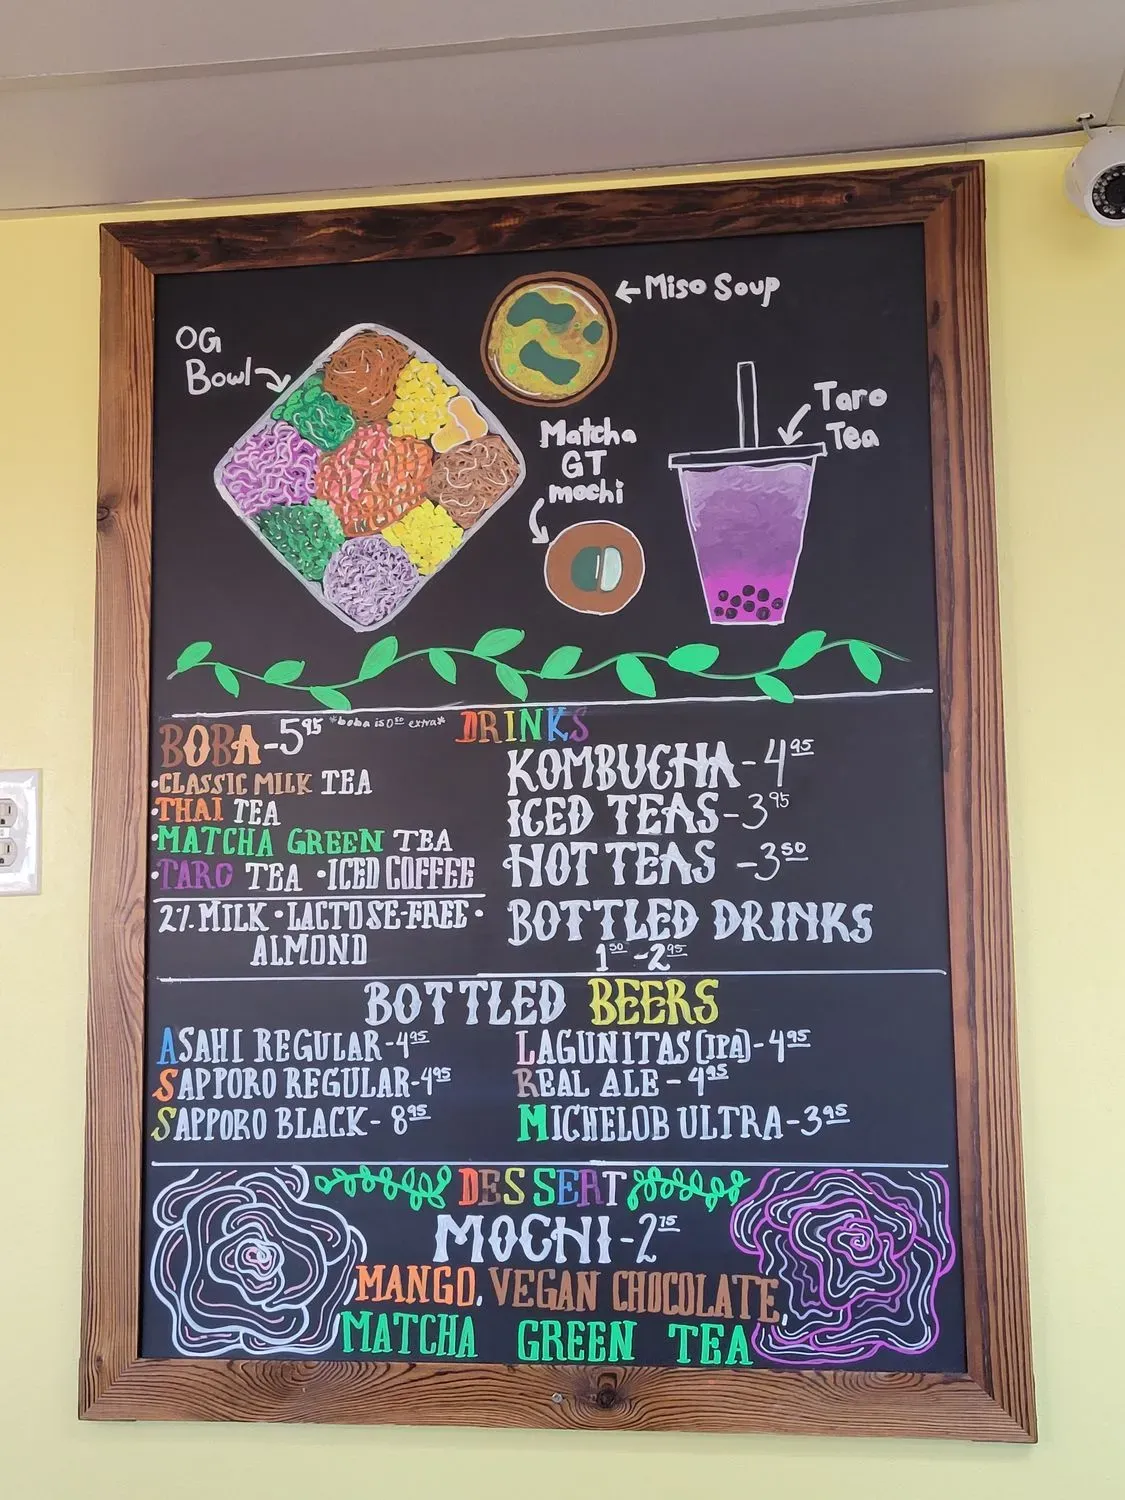 OG
Bowl
Miso Soup
Matcha
GT
mochi
Taro
Tea
BOBA-5⁹⁵ *boba is 0⁵⁰ extra*
•CLASSIC MILK TEA
•THAI TEA
•MATCHA GREEN TEA
•TARO TEA •ICED COFFEE
2% MILK • LACTOSE-FREE •
ALMOND
DRINKS
KOMBUCHA-4⁹⁵
ICED TEAS-3⁹⁵
HOT TEAS -3⁵⁰
BOTTLED DRINKS
1⁵⁰ -2⁹⁵
BOTTLED BEERS
ASAHI REGULAR-4⁹⁵
SAPPORO REGULAR-4⁹⁵
SAPPORO BLACK- 8⁹⁵
LAGUNITAS (IPA)-4⁹⁵
REAL ALE - 4⁹⁵
MICHELOB ULTRA-3⁹⁵
DESSERT
MOCHI-2⁷⁵
MANGO, VEGAN CHOCOLATE,
MATCHA GREEN TEA